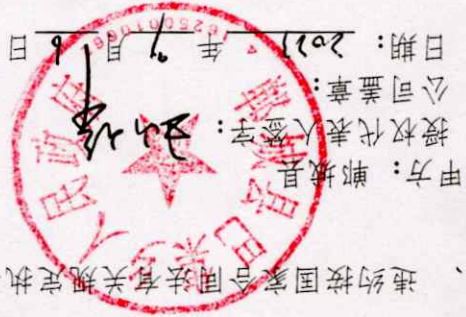 、违约按国家合同法有关规定执
甲方：郸城县
授权代表人签字：
公司盖章：
日期：年月日
郸城县巴集乡人民政府